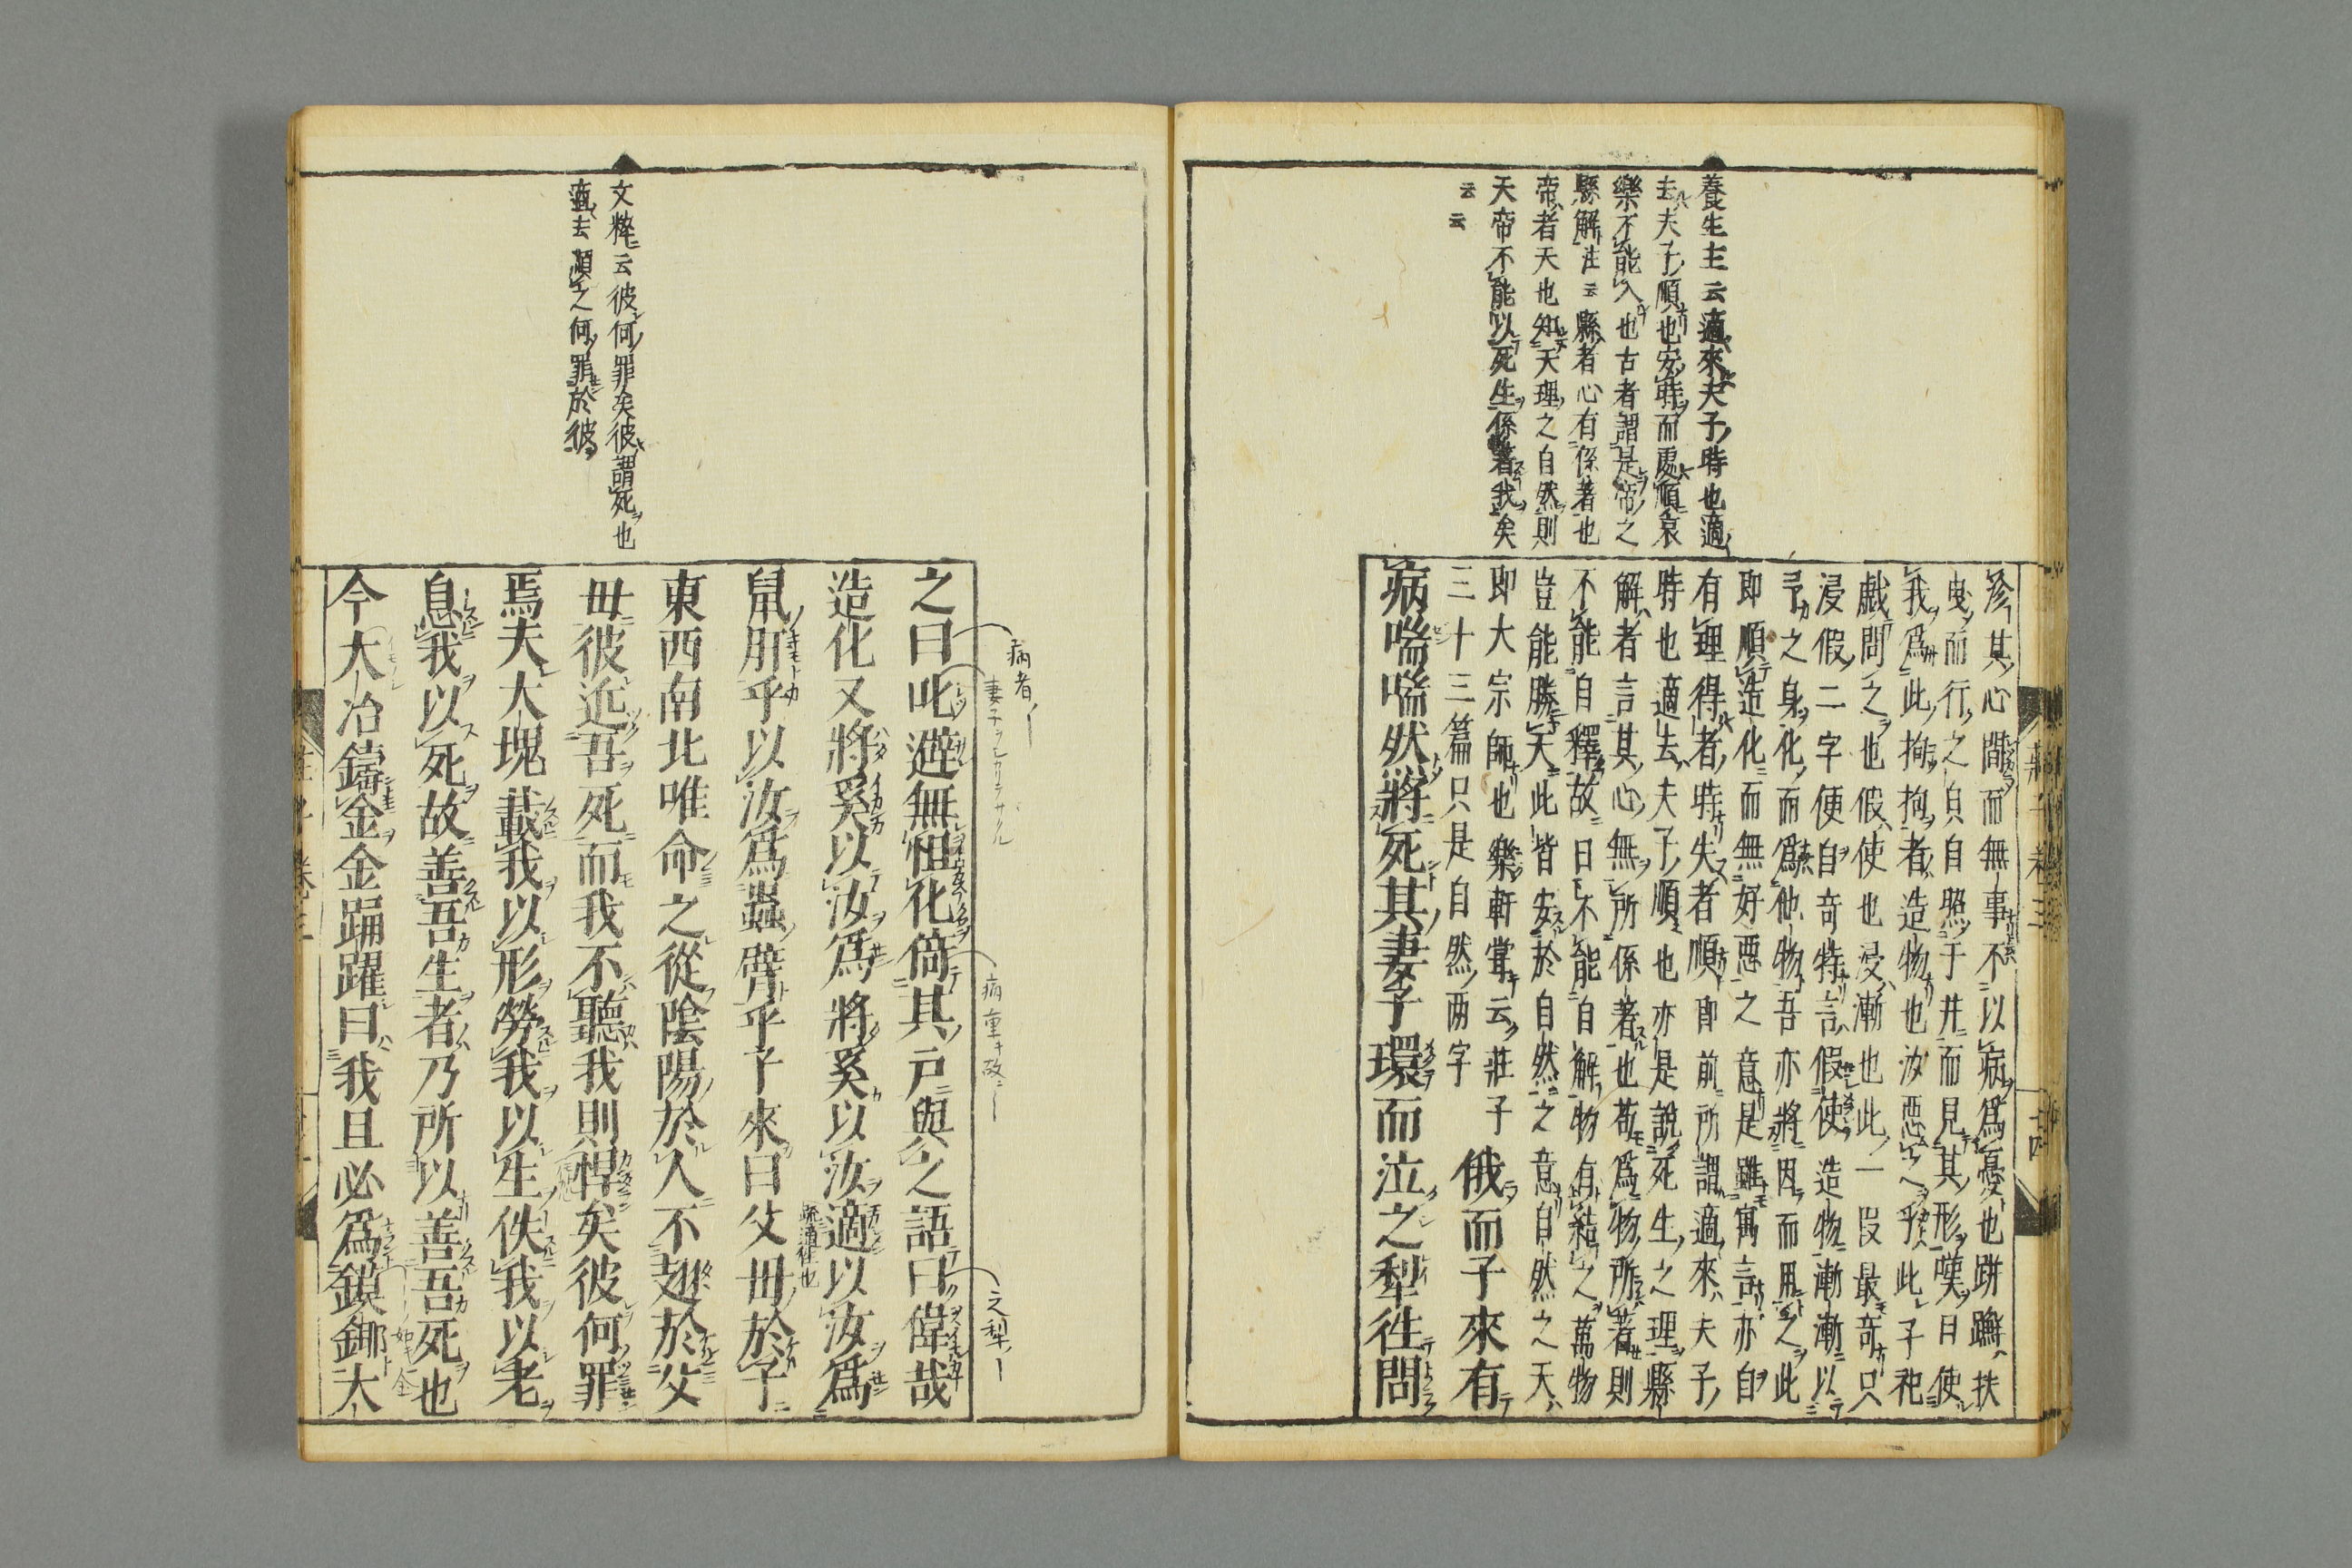 養生主云適來夫子時也適
去夫子順也安時而處順哀
樂不能入也古者謂是帝之
縣解注云縣者心有係著也
帝者天也知天理之自然則
天帝不能以死生係著我矣
云云
沴其心間而無事不以病爲憂也跰𨇤扶
曳而行之皃自照于井而見其形嘆曰使
我爲此拘拘者造物也汝惡之乎此子祀
戲問之也假使也浸漸也此一段最奇只
浸假二字便自奇特言假使造物漸漸以
予之身化而爲他物吾亦將因而用之此
即順造化而無好惡之意是雖寓言亦自
有理得者時失者順即前所謂適來夫子
時也適去夫子順也亦是說死生之理縣
解者言其心無所係著也苟爲物所著則
不能自釋故曰不能自解物有結之萬物
豈能勝天此皆安於自然之意自然之天
即大宗師也樂軒嘗云莊子
三十三篇只是自然兩字
俄而子來有
病喘喘然將死其妻子環而泣之犁往問
文粹云彼何罪矣彼謂死也
適去順之何罪於彼
之曰叱避無怛化倚其戶與之語曰偉哉
造化又將奚以汝爲將奚以汝適以汝爲
鼠肝乎以汝爲蟲臂乎子來曰父毋於子
東西南北唯命之從陰陽於人不翅於父
毋彼近吾死而我不聽我則悍矣彼何罪
焉夫大塊載我以形勞我以生佚我以老
息我以死故善吾生者乃所以善吾死也
今大冶鑄金金踊躍曰我且必爲鏌鋣大
病者
妻子
病重
之犁
疏適往也